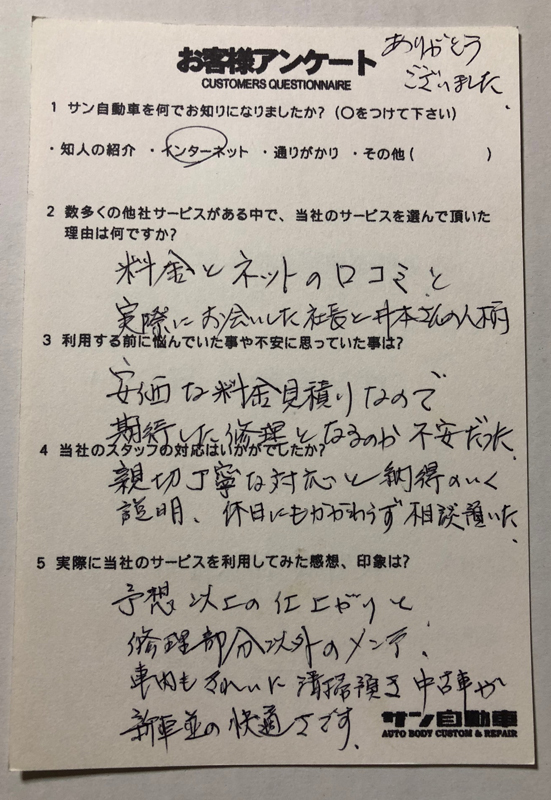 お客様アンケート
CUSTOMERS QUESTIONNAIRE
ありがとう
ございました.
1 サン自動車を何でお知りになりましたか?(○をつけて下さい)
・知人の紹介 ・インターネット ・通りがかり ・その他( )
2 数多くの他社サービスがある中で、当社のサービスを選んで頂いた
理由は何ですか?
料金とネットの口コミと
実際にお会いした社長と井本さんの人柄
3 利用する前に悩んでいた事や不安に思っていた事は?
安価な料金見積りなので
期待した修理となるのか不安だった.
4 当社のスタッフの対応はいかがでしたか?
親切丁寧な対応と納得のいく
説明、休日にもかかわらず相談頂いた.
5 実際に当社のサービスを利用してみた感想、印象は?
予想以上の仕上がりと
修理部分以外のメンテ.
車内もきれいに清掃頂き中古車が
新車並の快適さです.
サン自動車
AUTO BODY CUSTOM & REPAIR